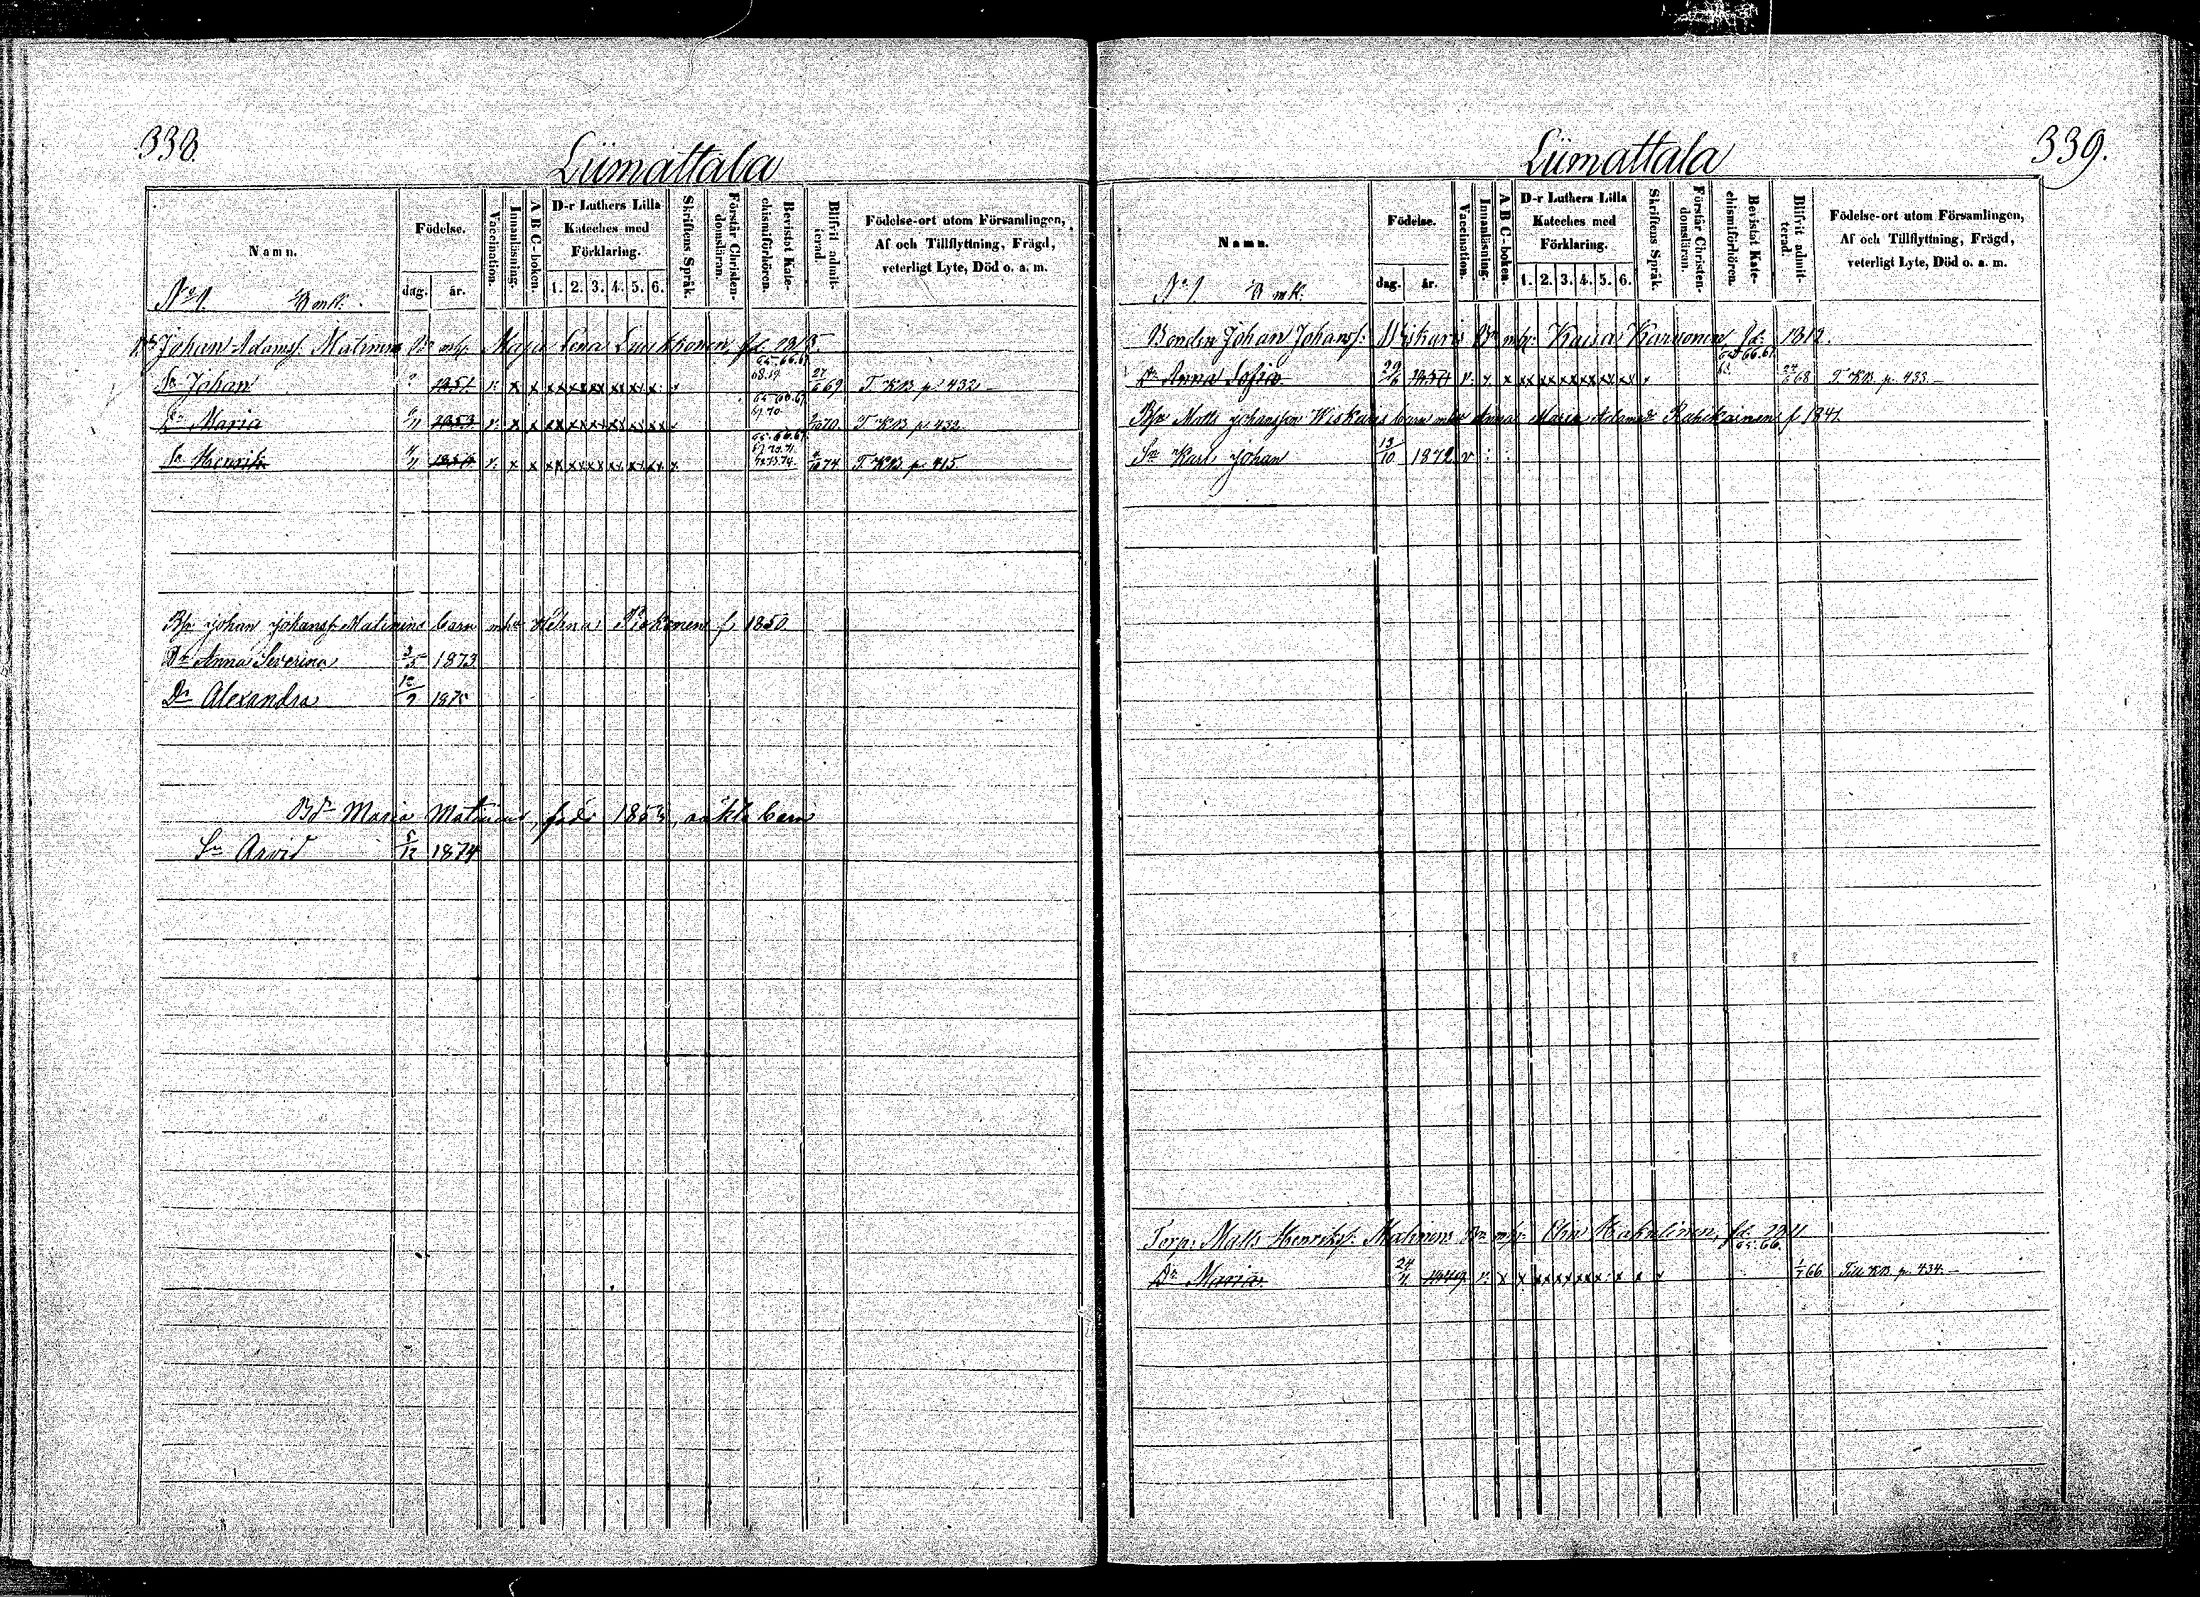 338.
Liimattala
Namn.
Födelse.
dag.
år.
Vaccination.
Innanläsning.
A B C-boken.
D-r Luthers Lilla Kateches med Förklaring.
1. 2. 3. 4. 5. 6.
Skriftens Språk.
Förstår Christendomsläran.
Bevistat Katechismiförhören.
Blifvit admitterad.
Födelse-ort utom Församlingen,
Af och Tillflyttning, Frägd,
veterligt Lyte, Död o. a. m.
No 1.
Johan Adamsf. Matinens Bn mhu Maja Lena Luukkonen fd. 1813.
Sn Johan 1851 v. x x 65.66.67. 68.69. 27/6 69 T. KB p. 432 —
Dr Maria 1853 v. x x 65.66.67. 69.70. 70 T. KB p. 432
Sn Henrik v. x x 65.66.67. 74 T. KB p. 415
Bsn Johan Johansf. Matinens barn mhu Helena f. 1850.
Dr Anna Severina 3/5 1873
Dr Alexandra 12/9 1875
Bdr Maria Matinens, född 1853, oäkta barn
Sn Arvid 5/12 1874
339.
Liimattala
Namn.
Födelse.
dag.
år.
Vaccination.
Innanläsning.
A B C-boken.
D-r Luthers Lilla Kateches med Förklaring.
1. 2. 3. 4. 5. 6.
Skriftens Språk.
Förstår Christendomsläran.
Bevistat Katechismiförhören.
Blifvit admitterad.
Födelse-ort utom Församlingen,
Af och Tillflyttning, Frägd,
veterligt Lyte, Död o. a. m.
No 1
Bonden Johan Johansf: Wiskaris Bn mhu: Kaisa fd: 1812.
Dr Anna Sofia v. x x 68 T. KB. p. 433 —
Bsn Matts Johansson Wiskaris barn mhu Anna Maria Adamsdr f. 1841
Sn Karl Johan 13/10 1872 v
Torp: Matts Henriksf: Matinens Bn mhu: Elin fd. 1811
Dr Maria 24/4 1849 v. x x 65.66. 1/7 66 Till KB p. 434 —